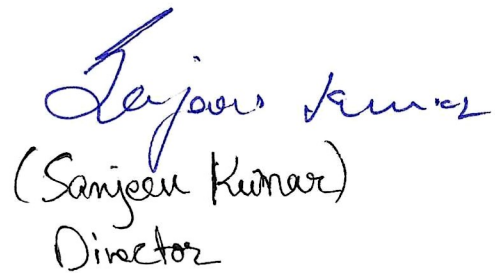 Sanjeev Kumar
(Sanjeev Kumar)
Director